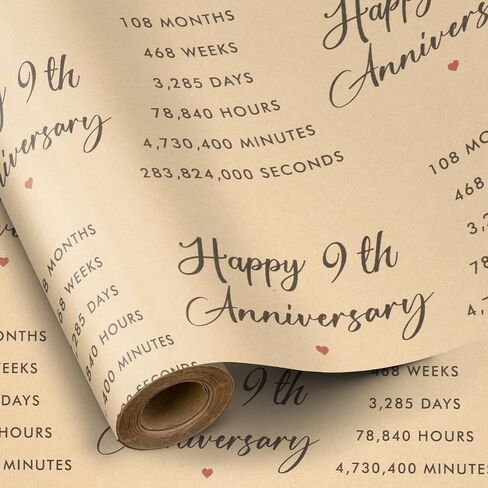 108 MONTHS
468 WEEKS
3,285 DAYS
78,840 HOURS
4,730,400 MINUTES
283,824,000 SECONDS
Happy
Anniversary
y 9th
niversary
108 MO
468
3,2
78
4,7
Happy 9th
Anniversary
8 MONTHS
68 WEEKS
285 DAYS
840 HOURS
400 MINUTES
SECONDS
ONTHS
EEKS
DAYS
HOURS
MINUTES
9th
versary
468 WEEKS
3,285 DAYS
78,840 HOURS
4,730,400 MINUTES